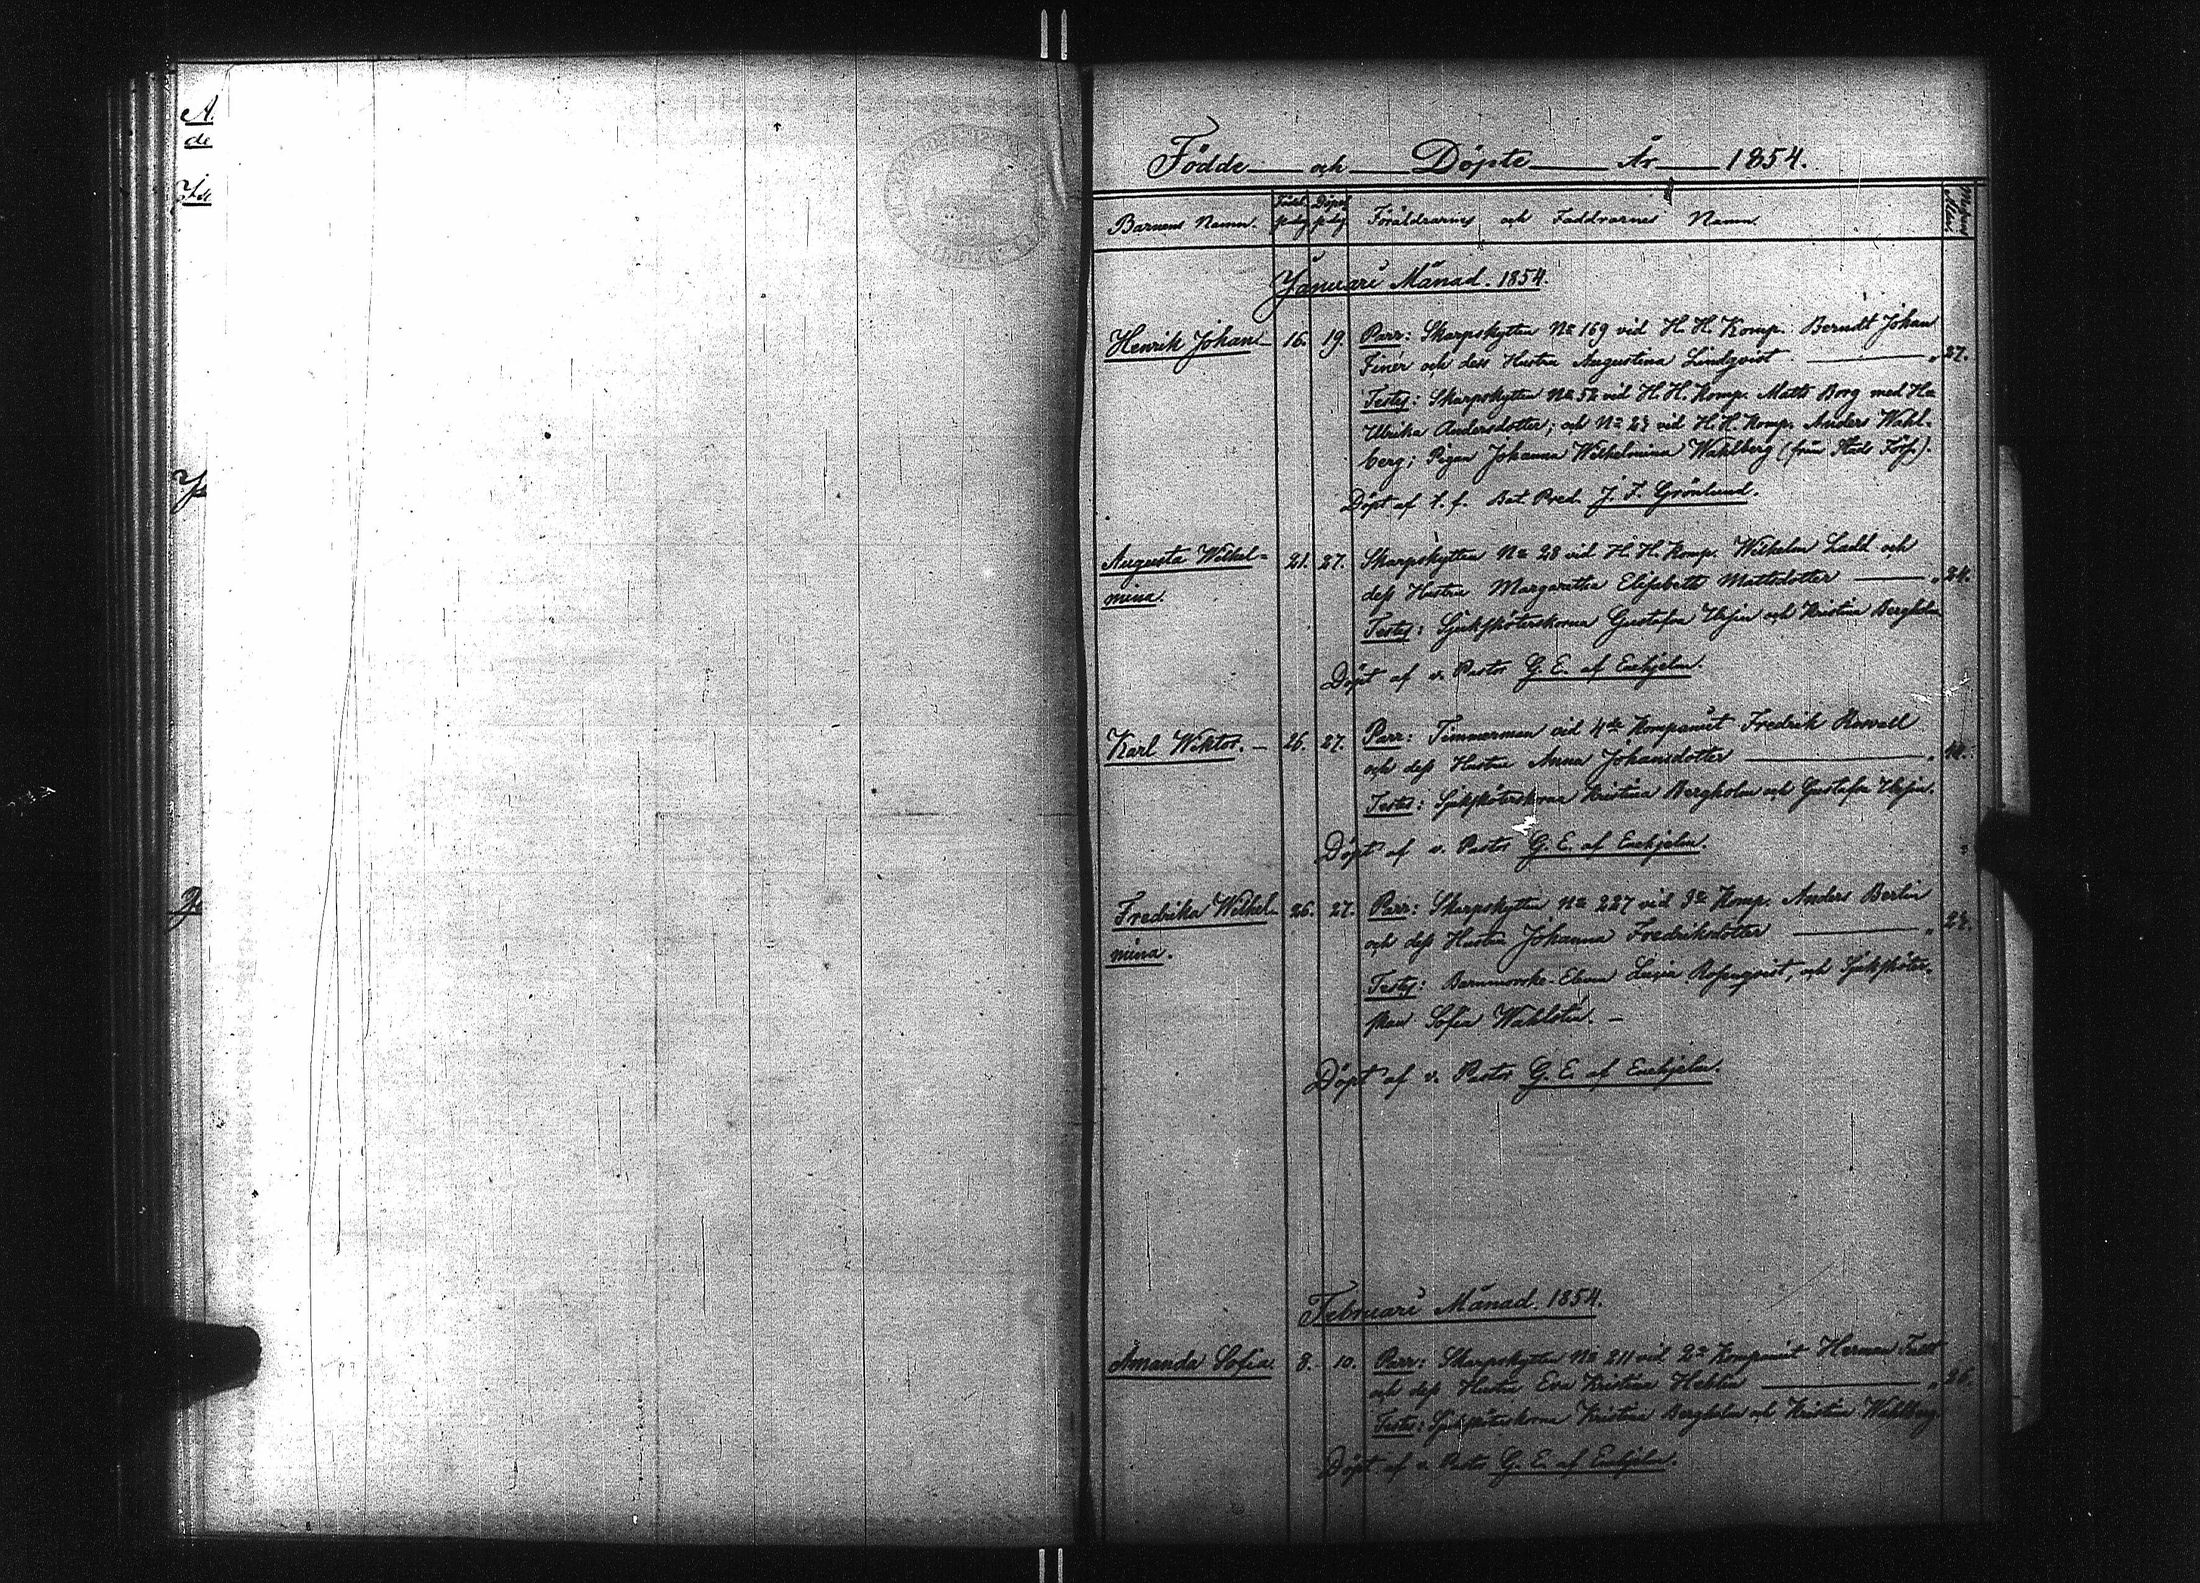 A.
de
Födde och Döpte År 1854.
Barnens Namn. Född på dag Döpt på dag Föräldrarnes och Faddrarnes Namn. Modrens Ålder.
Januari Månad. 1854.
Henrik Johan 16. 19. Parr: Skarpskytten No 169 vid H. H. Komp. Berndt Johan
Finér och dess Hustru Augustina Lindqvist " 27.
Testes: Skarpskytten No 52 vid H. H. Komp. Matts Borg med Ha
Ulrika Andersdotter; och No 23 vid H. H. Komp. Anders Wahl-
berg; Pigan Johanna Wilhelmina Wahlberg (från Stads Förs.).
Döpt af t. f. Bat. Pred. J. F. Grönlund.
Augusta Wilhel= 21. 27. Skarpskytten No 28 vid H. H. Komp. Wilhelm Ladd och
mina. dess Hustru Margaretha Elisabeth Mattsdotter " 24.
Testes: Sjuksköterskorna Gustafva och Kristina Bergholm
Döpt af v. Pastor G. E. af Enehjelm.
Karl Wiktor. 26. 27. Parr: Timmerman vid 4de Kompaniet Fredrik
och dess Hustru Anna Johansdotter "
Testes: Sjuksköterskorna Kristina Bergholm och Gustafva
Döpt af v. Pastor G. E. af Enehjelm.
Fredrika Wilhel- 26. 27. Parr: Skarpskytten No 227 vid 3e Komp. Anders Berlin
mina. och dess Hustru Johanna Fredriksdotter " 23.
Testes: Barnmorske-Eleven Lovisa Rosenqvist, och Sjuksköter-
skan Sofia Wahlstén.
Döpt af v. Pastor G. E. af Enehjelm.
Februari Månad. 1854.
Amanda Sofia. 8. 10. Parr: Skarpskytten No 211 vid 2a Kompaniet Herman
och dess Hustru Eva Kristina " 26.
Testes: Sjuksköterskorna Kristina Bergholm och Kristina Wahlberg.
Döpt af v. Pastor G. E. af Enehjelm.